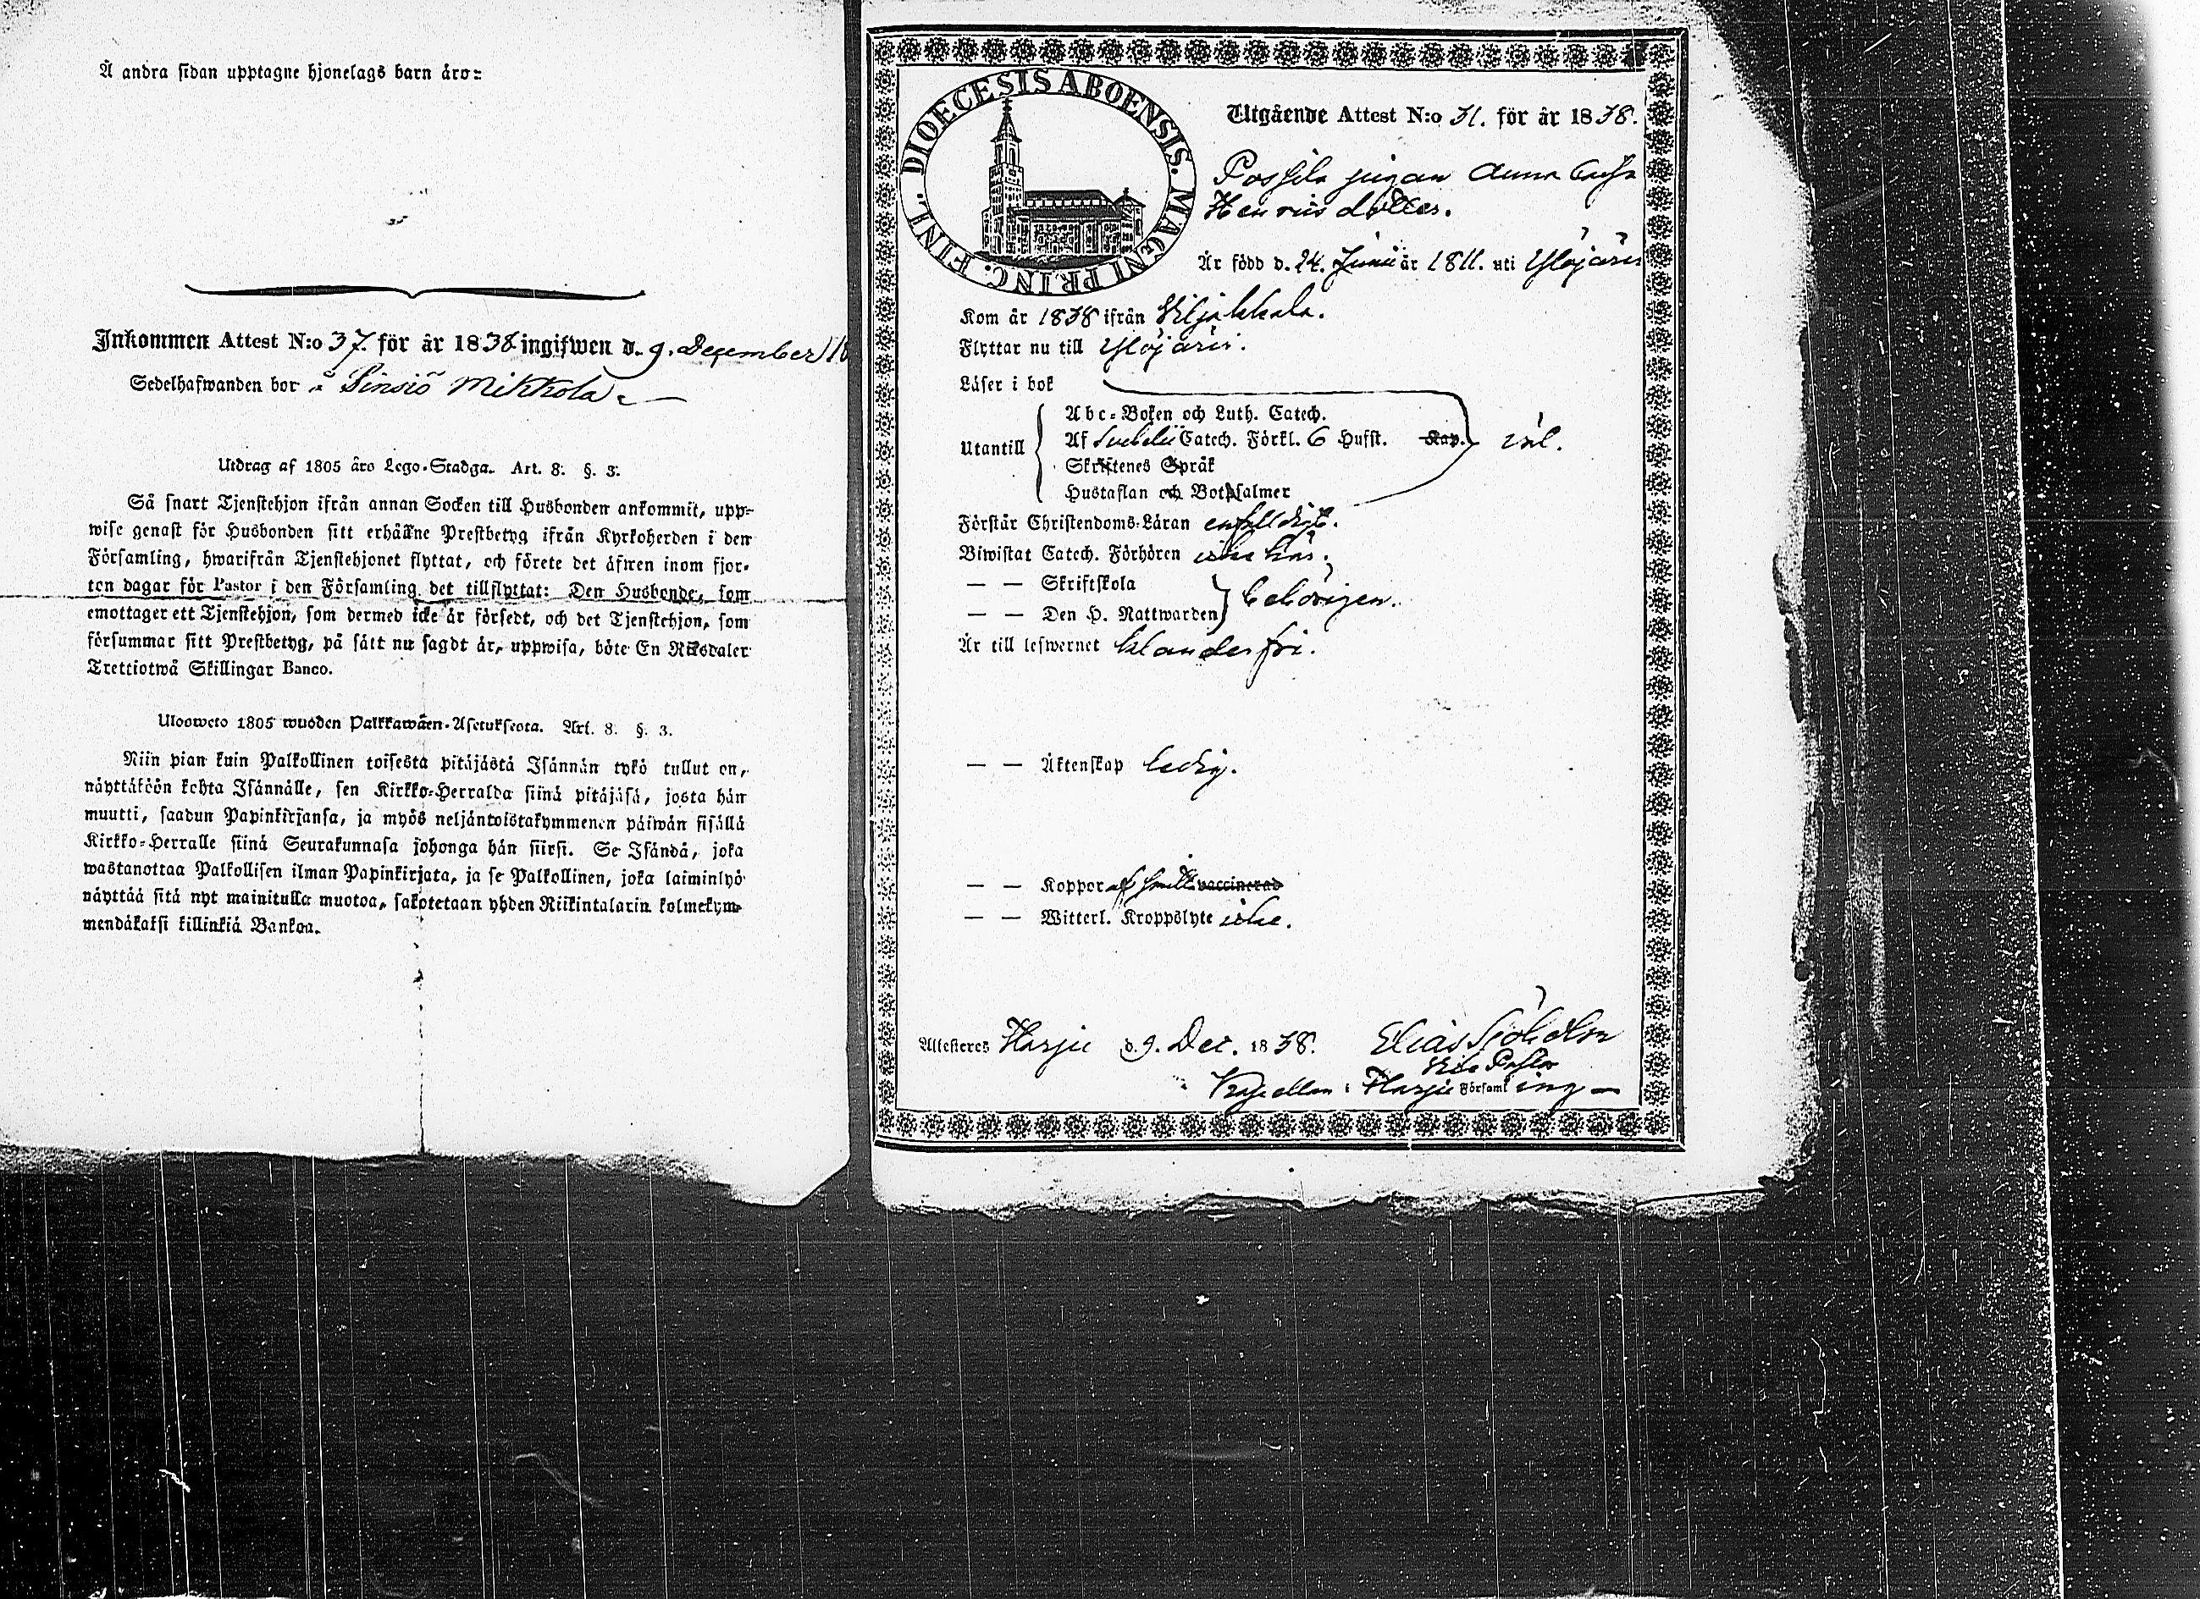 Å andra sidan upptagne hjonelags barn äro:
Inkommen Attest N:o 37. för år 1838 ingifwen d. 9. December
Sedelhafwanden bor å Pinsiö Mikkola.
Utdrag af 1805 års Lego-Stadga. Art. 8. §. 3.
Så snart Tjenstehjon ifrån annan Socken till Husbonden ankommit, upp-
wise genast för Husbonden sitt erhållne Prestbetyg ifrån Kyrkoherden i den
Församling, hwarifrån Tjenstehjonet flyttat, och förete det äfwen inom fjor-
ton dagar för Pastor i den Församling det tillflyttat: Den Husbonde, som
emottager ett Tjenstehjon, som dermed icke är försedt, och det Tjenstehjon, som
försummar sitt Prestbetyg, på sätt nu sagdt är, uppwisa, böte En Riksdaler
Trettiotwå Skillingar Banco.
Ulosweto 1805 wuoden Palkkawäen-Asetuksesta. Art. 8. §. 3.
Niin pian kuin Palkollinen toisesta pitäjästä Isännän tykö tullut on,
näyttäköön kohta Isännälle, sen Kirkko-Herralda siinä pitäjäsä, josta hän
muutti, saadun Papinkirjansa, ja myös neljäntoistakymmenen päiwän sisällä
Kirkko-Herralle siinä Seurakunnasa johonga hän siirsi. Se Isändä, joka
wastanottaa Palkollisen ilman Papinkirjata, ja se Palkollinen, joka laiminlyö
näyttää sitä nyt mainitulla muotoa, sakotetaan yhden Riikintalarin kolmekym-
mendäkaksi killinkiä Bankoa.
DIOECESIS ABOENSIS. MAGNI PRINC. FINL.
Utgående Attest N:o 31. för år 1838.
pigan Anna
Henricsdotter.
Är född d. 24. Junii år 1811. uti Ylöjärvi
Kom år 1838 ifrån Viljakkala.
Flyttar nu till Ylöjärvi.
Läser i bok
Utantill
Abc-Boken och Luth. Catech.
Af Svebelii Catech. Förkl. 6 Hufst. Kap. väl.
Skriftenes Språk
Hustaflan och Botpsalmer
Förstår Christendoms-Läran enfaldigt.
Biwistat Catech. Förhören icke här.
— — Skriftskola
— — Den H. Nattwarden behörigen.
Är till lefwernet klanderfri.
— — Äktenskap ledig.
— — Koppor vaccinerad
— — Witterl. Kroppslyte icke.
Attesteres Harju d. 9. Dec. 1838. Elias Sjöholm
Vice Pastor
Kapellan i Harju Församling